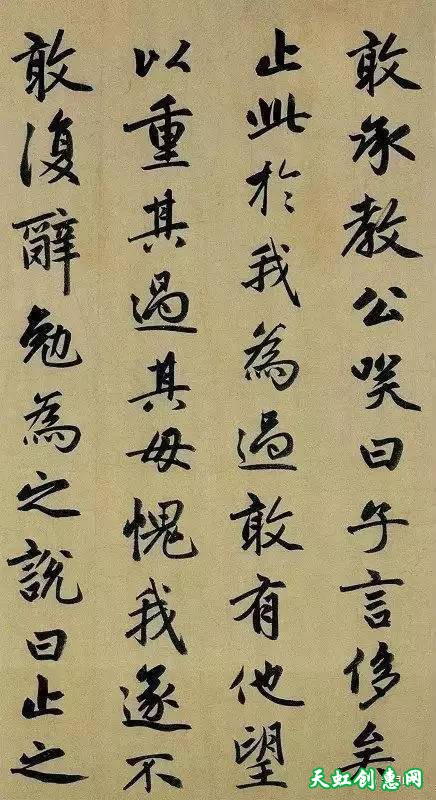 敢承教公笑曰子言侈矣
止此於我為過敢有他望
以重其過其毋愧我遂不
敢復辭勉為之說曰止之
天虹创惠网